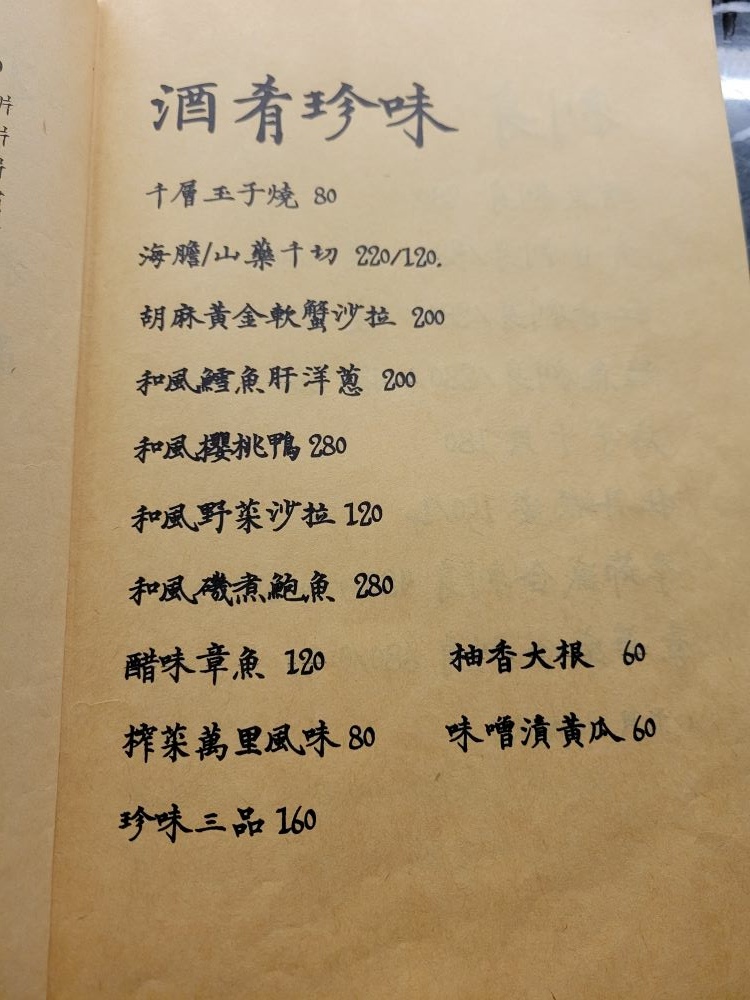 酒肴珍味
千層玉子燒 80
海膽/山藥千切 220/120.
胡麻黃金軟蟹沙拉 200
和風鱈魚肝洋蔥 200
和風櫻桃鴨 280
和風野菜沙拉 120
和風磯煮鮑魚 280
醋味章魚 120
柚香大根 60
榨菜萬里風味 80
味噌漬黃瓜 60
珍味三品 160